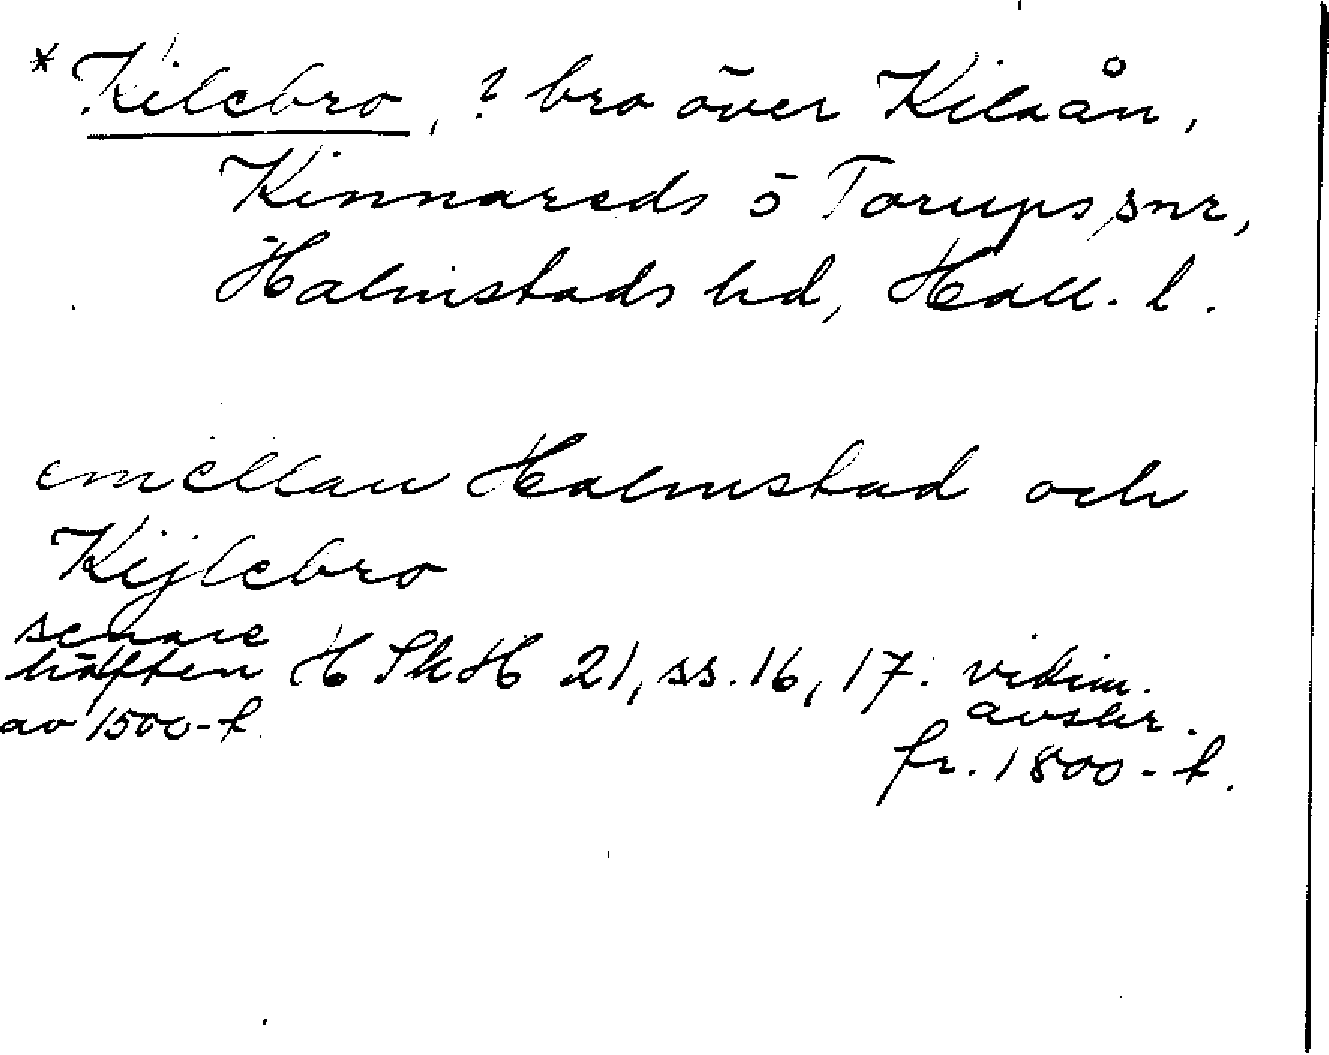 * Kilebro, ? bro över Kilaån,
Kinnareds o Torups snr,
Halmstads hd, Hall. l.
emellan Halmstad och
Kijlebro
senare
hälften H Sk H 21, ss. 16, 17. vidim.
av 1500-t. avskr.
fr. 1800-t.